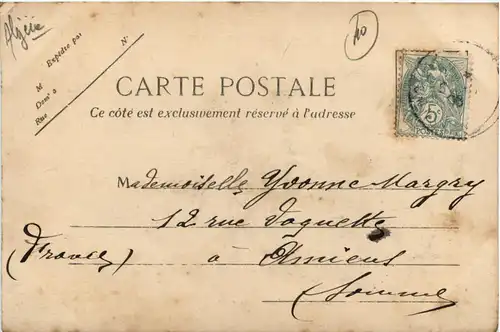 Algérie
Expédié par
N°
M
Dem^t à
Rue
40
CARTE POSTALE
Ce côté est exclusivement réservé à l'adresse
5
POSTES
Mademoiselle Yvonne Margry
12 rue Vaquette
(France) à Amiens
Somme